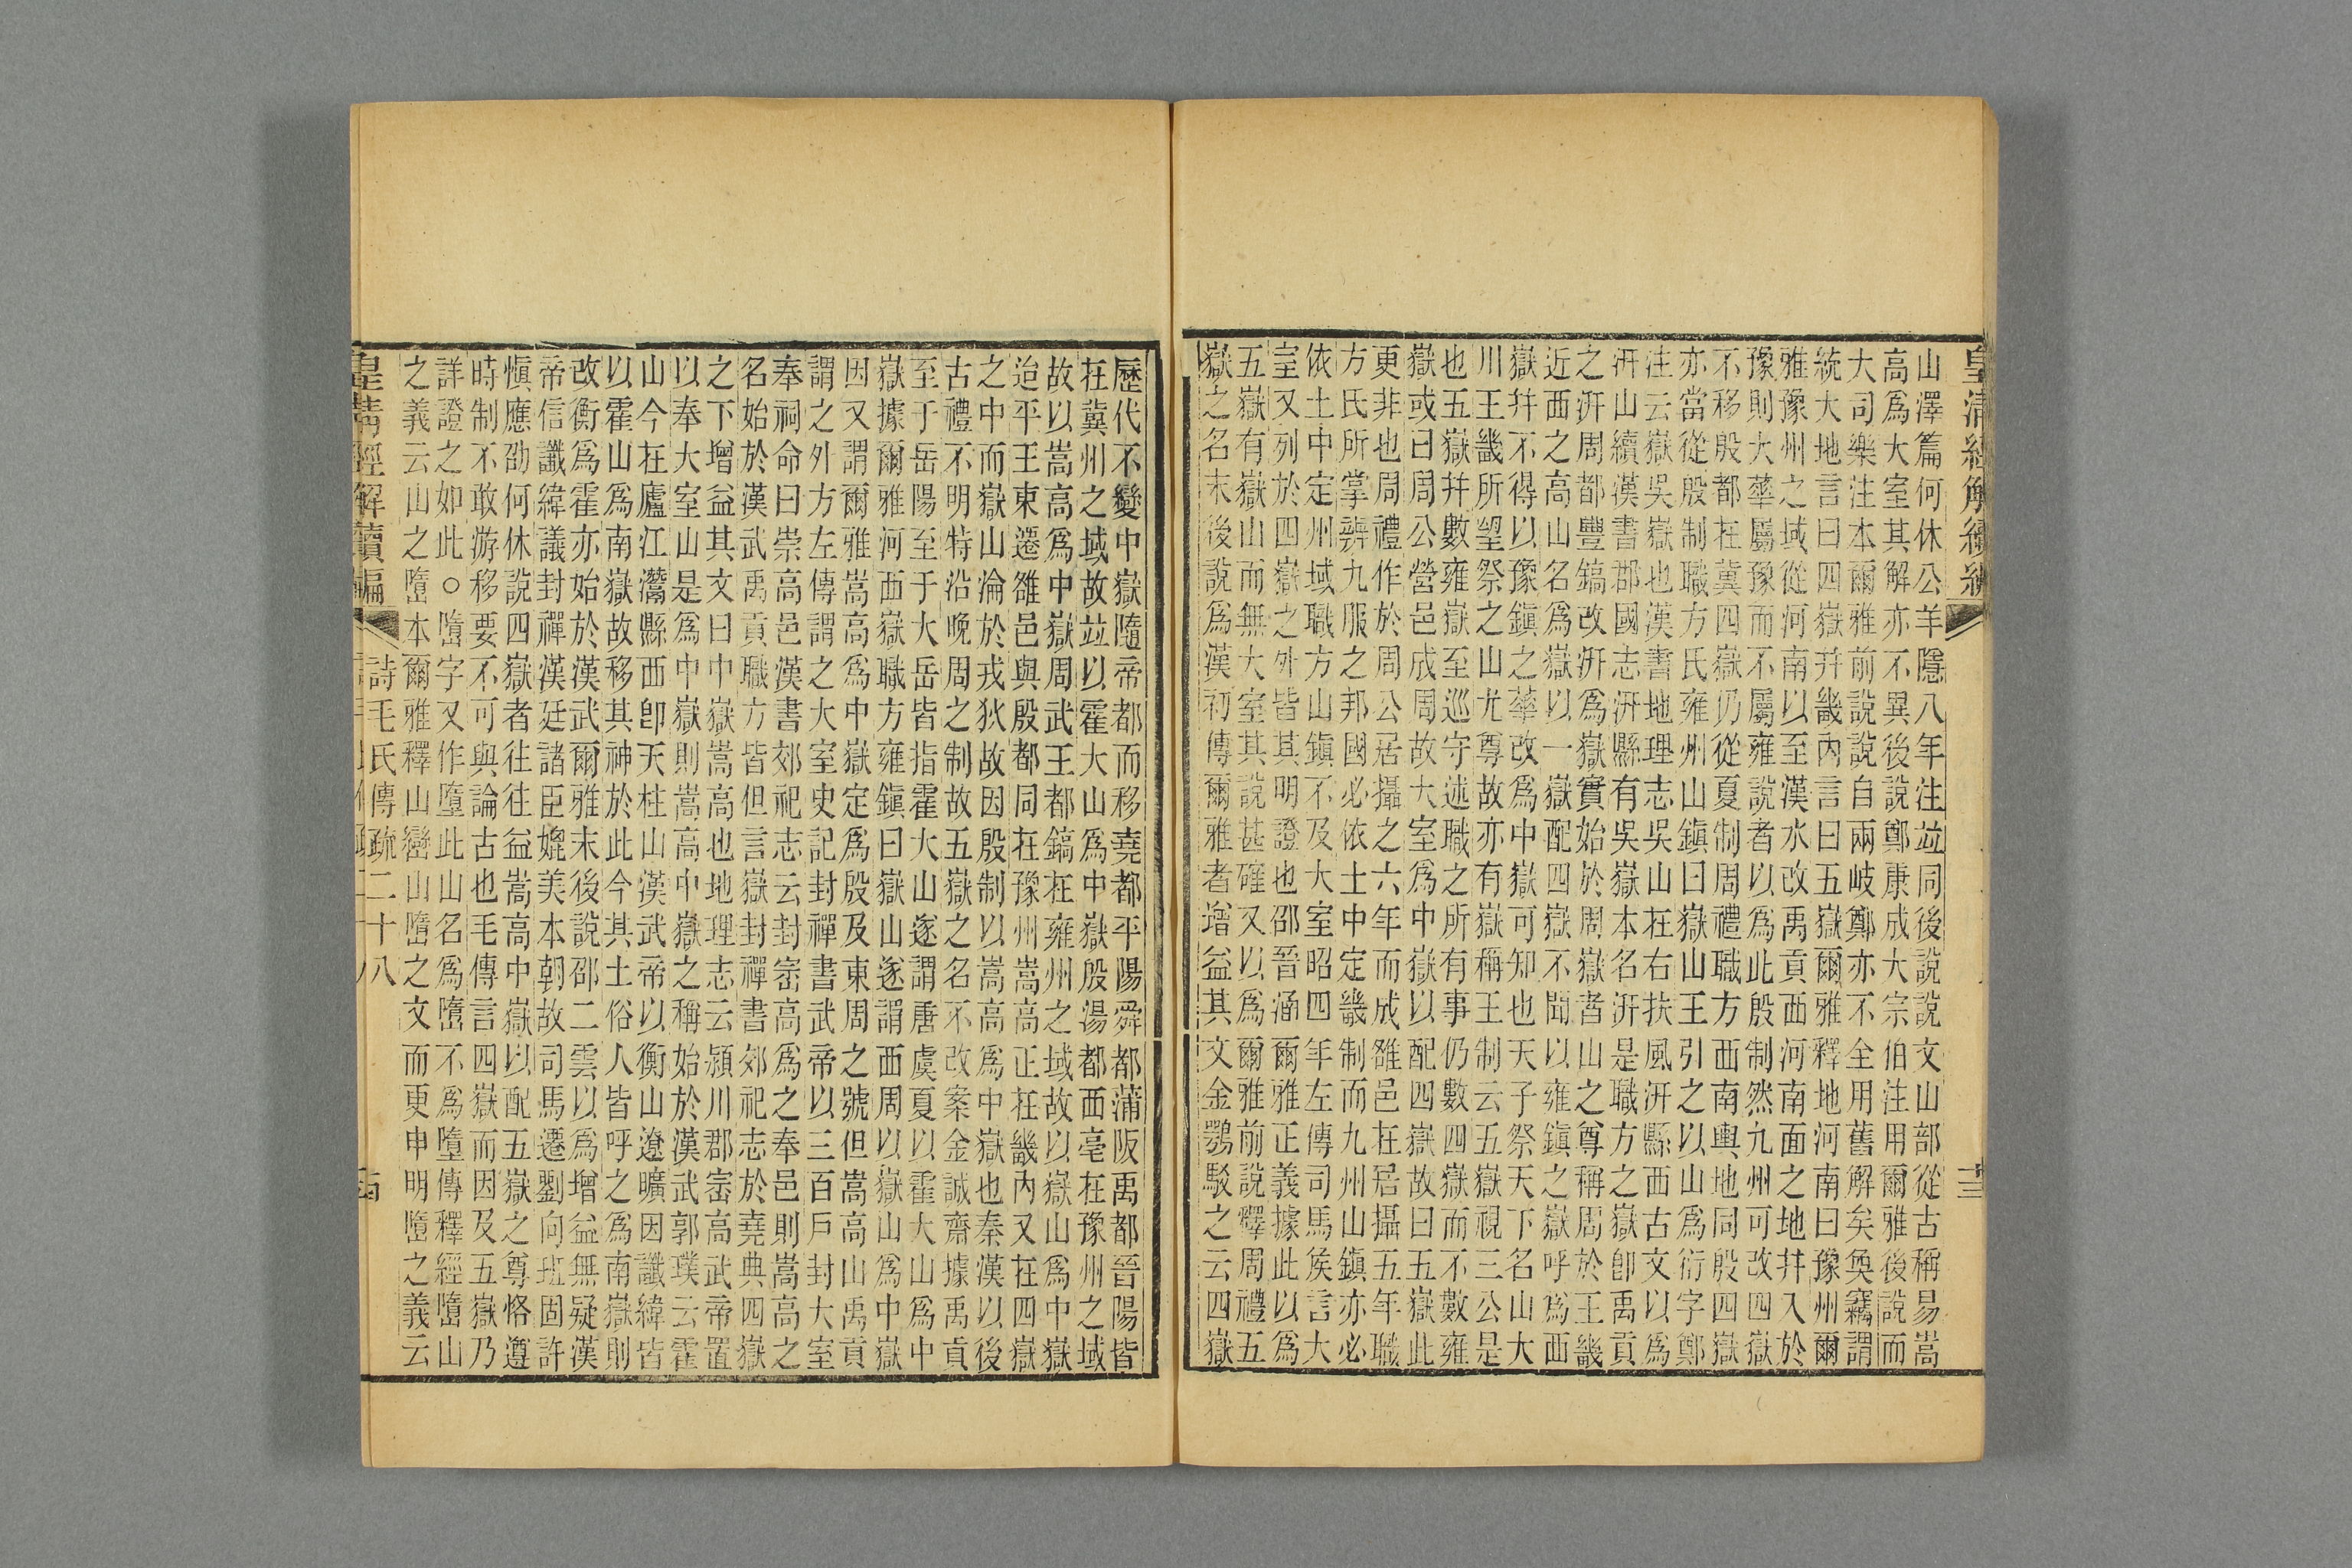 皇清經解續編
十三
山澤篇何休公羊隱八年注竝同後說說文山部從古稱易嵩
高爲大室其解亦不異後說鄭康成大宗伯注用爾雅後說而
大司樂注本爾雅前說說自兩岐鄭亦不全用舊解矣奐竊謂
統大地言曰四嶽幷畿內言曰五嶽爾雅釋地河南曰豫州爾
雅豫州之域從河南以至漢水改禹貢西河南面之地幷入於
豫則大華屬豫而不屬雍說者以爲此殷制然九州可改四嶽
不移殷都在冀四嶽仍從夏制周禮職方西南輿地同殷四嶽
亦當從殷制職方氏雍州山鎭曰嶽山王引之以山爲衍字鄭
注云嶽吳嶽也漢書地理志吳山在右扶風汧縣西古文以爲
汧山續漢書郡國志汧縣有吳嶽本名汧是職方之嶽卽禹貢
之汧周都豐鎬改汧爲嶽實始於周嶽者山之尊稱周於王畿
近西之高山名爲嶽以一嶽配四嶽不聞以雍鎭之嶽呼爲西
嶽幷不得以豫鎭之華改爲中嶽可知也天子祭天下名山大
川王畿所望祭之山尤尊故亦有嶽稱王制云五嶽視三公是
也五嶽幷數雍嶽至巡守述職之所有事仍數四嶽而不數雍
嶽或曰周公營邑成周故大室爲中嶽以配四嶽故曰五嶽此
更非也周禮作於周公居攝之六年而成雒邑在居攝五年職
方氏所掌辨九服之邦國必依土中定畿制而九州山鎭亦必
依土中定州域職方山鎭不及大室昭四年左傳司馬侯言大
室又列於四嶽之外皆其明證也邵晉涵爾雅正義據此以爲
五嶽有嶽山而無大室其說甚確又以爲爾雅前說釋周禮五
嶽之名末後說爲漢初傳爾雅者增益其文金鶚駁之云四嶽
歷代不變中嶽隨帝都而移堯都平陽舜都蒲阪禹都晉陽皆
在冀州之域故竝以霍大山爲中嶽殷湯都西亳在豫州之域
故以嵩高爲中嶽周武王都鎬在雍州之域故以嶽山爲中嶽
迨平王東遷雒邑與殷都同在豫州嵩高正在畿內又在四嶽
之中而嶽山淪於戎狄故因殷制以嵩高爲中嶽也秦漢以後
古禮不明特沿晚周之制故五嶽之名不改案金誠齋據禹貢
至于岳陽至于大岳皆指霍大山遂謂唐虞夏以霍大山爲中
嶽據爾雅河西嶽職方雍鎭曰嶽山遂謂西周以嶽山爲中嶽
因又謂爾雅嵩高爲中嶽定爲殷及東周之號但嵩高山禹貢
謂之外方左傳謂之大室史記封禪書武帝以三百戶封大室
奉祠命曰崇高邑漢書郊祀志云封崈高爲之奉邑則嵩高之
名始於漢武禹貢職方皆但言嶽封禪書郊祀志於堯典四嶽
之下增益其文曰中嶽嵩高也地理志云潁川郡崈高武帝置
以奉大室山是爲中嶽則嵩高中嶽之稱始於漢武郭璞云霍
山今在廬江灊縣西卽天柱山漢武帝以衡山遼曠因讖緯皆
以霍山爲南嶽故移其神於此今其土俗人皆呼之爲南嶽則
改衡爲霍亦始於漢武爾雅末後說邵二雲以爲增益無疑漢
帝信讖緯議封禪漢廷諸臣媲美本朝故司馬遷劉向班固許
愼應劭何休說四嶽者往往益嵩高中嶽以配五嶽之尊恪遵
時制不敢游移要不可與論古也毛傳言四嶽而因及五嶽乃
詳證之如此○墮字又作墯此山名爲墮不爲墯傳釋經墮山
之義云山之墮本爾雅釋山巒山墮之文而更申明墮之義云
皇清經解續編
詩毛氏傳疏二十八